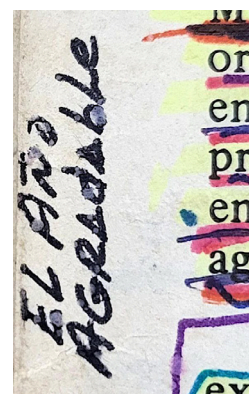 EL AÑO
AGRADABLE
or
en
pr
en
ag
ex